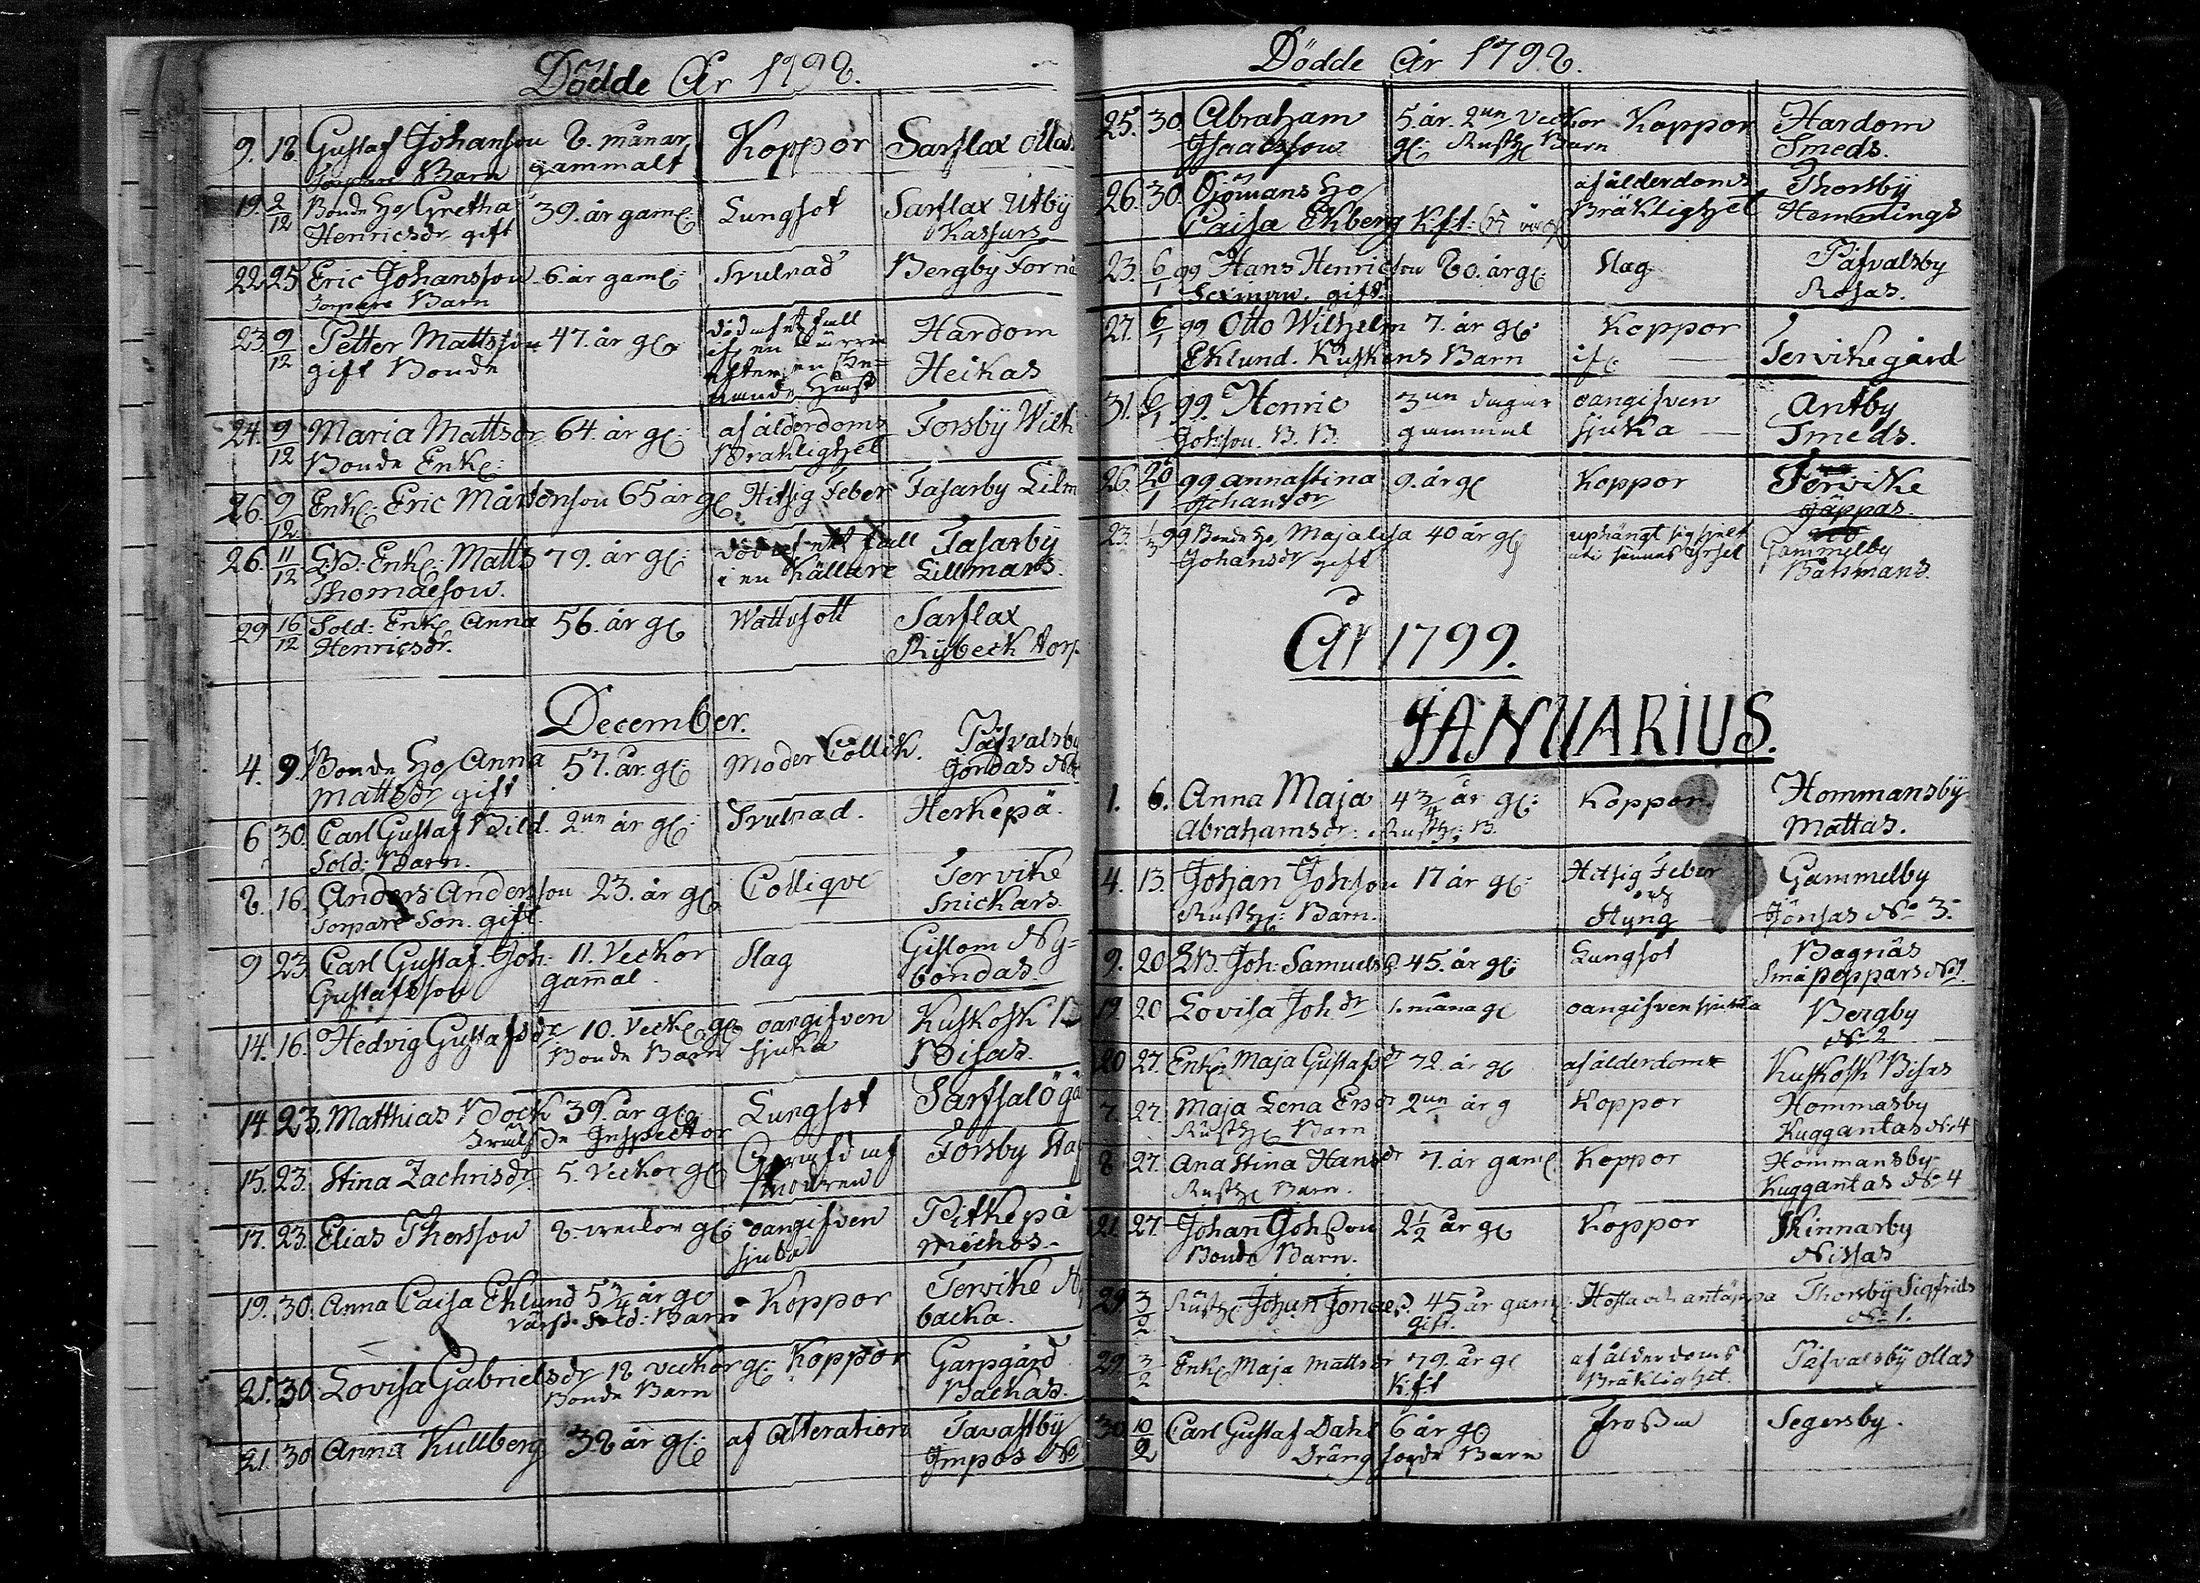 Dödde År 1798.
9. 18. Gustaf Johansson 8. månar Koppor Sarflax Ollas
Torpare Barn gammalt
19. 2/12 Bonde Ho Gretha 39. år gaml: Lungsot Sarflax Utby
Henricsdr gift Kasfurs
22 25 Eric Johansson 6. år gaml: Svulnad Bergby
Torpare Barn
23 9/12 Petter Mattsson 47. år gl: död af et fall Hardom
gift Bonde Heikas
efter en
24. 9/12 Maria Mattsdr 64. år gl: af ålderdoms Forsby
Bonde Enkl: Bräklighet
26. 9/12 Enkl: Eric Mårtensson 65 år gl. Hitsig Feber Fasarby
26. 11/12 Enkl: Matts 79. år gl: död af ett fall Fasarby
Thomæson. i en Källare Lillmars.
29 16/12 Sold: Enkl Anna 56. år gl Wattusott Sarflax
Henricsdr. Rybeck torp
December.
4. 9. Bonde Ho Anna 57. år. gl: Moder Collik. Påfvalsby
Mattsdr gift Gordas No
6 30. Carl Gustaf Bild. 2un år gl: Svulnad. Herkepä.
Sold: Barn.
8. 16. Anders Andersson 23. år gl Collique Tervike
Torpare Son. gift Snickars
9 23 Carl Gustaf. Joh: 11. Veckor Slag Gislom Ny=
Gustafsson gam̄al. bondas.
14. 16. Hedvig Gustafsdr 10. Veckl gl oangifven Kuskosk
Bonde Barn sjuka Bisas.
14. 23. Matthias Bock 39. år gl: Lungsot Sarfsalö
Inspector
15. 23. Stina Zachrisdr 5. Veckor gl Forsby
modren
17. 23. Elias Thorsson 8. veckor gl: oangifven Pitkepä
sjuka Michos.
19. 30. Anna Caisa Eklund 5 3/4 år gl Koppor Tervike
Sold: Barn backa.
21. 30. Lovisa Gabrielsdr 18 veckor gl: Koppor Garpgård
Bonde Barn Backas.
21. 30 Anna Kullberg 38 år gl: af Alteration Tavastby
Impos No
Dödde År 1798.
25. 30. Abraham 5. år. 2un Veckor Koppor Hardom
Isaacsson gl: Rusth. Barn Smeds.
26. 30. Sjömans Ho af ålderdoms Thorsby
Caisa Ekberg K.f.t: Bräklighet Hemmings
23. 6/1 99 Hans Henricson 80. år gl: Slag Påfvalsby
gift. Rosas.
27. 6/1 99 Otto Wilhelm 7. år gl: Koppor
Eklund. Kuskens Barn Tervike gård
31. 6/1 99. Henric 3un dagar oangifven Antby
Johsson. B. B. gammal sjuka Smeds.
26. 20/1 99 Annastina 9. år gl Koppor Tervike
Johansdr Jäppas.
23. 1/3 99 Bonde Ho Majalisa 40 år gl uphängt sig sjelf Gammelby
Johansdr gift uti sinnes yrsel Båtsmans.
År 1799.
JANUARIUS.
1. 6. Anna Maja 4 3/4 år gl: Koppor. Hommansby
Abrahamsdr: Rusth: B. Mattas.
4. 13. Johan Johsson 17 år gl: Hitsig Feber Gammelby
Rusth: Barn. och Styng Jönsas No 3.
9. 20 Joh: Samuels 45. år gl: Lungsot Bagnäs
Småpeppars No 1.
19. 20 Lovisa Johdr 1. måna gl oangifven sjukka Bergby
No 2
20 27. Enkl: Maja Gustafsdr 72. år gl af ålderdom Kuskosk Bisas
7. 27. Maja Lena Ersdr 2un år g Koppor Hommasby
Rusth Barn Kuggantas No 4
8. 27. Ana Stina Hansdr 7. år gaml. Koppor Hommansby
Rusth Barn. Kuggantas No 4
21. 27. Johan Johsson 2 1/2 år gl Koppor Skinnarby
Bonde Barn. Nissas
29 3/2 Rusth Johan Jonæs. 45 år gaml: Hosta och antäppa Thorsby Sigfrids
gift. No 1.
29. 3/2 Enkl Maja Mattsdr 79. år gl af ålderdoms Påfvalsby Ollas
K.f.t Bräklighet.
30 10/2 Carl Gustaf Dahl 6 år gl Frossa Segersby.
Dräng Barn